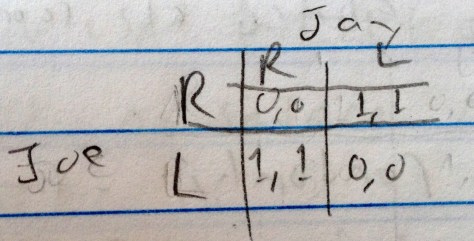 Jay
R L
R 0,0 1,1
Joe
L 1,1 0,0